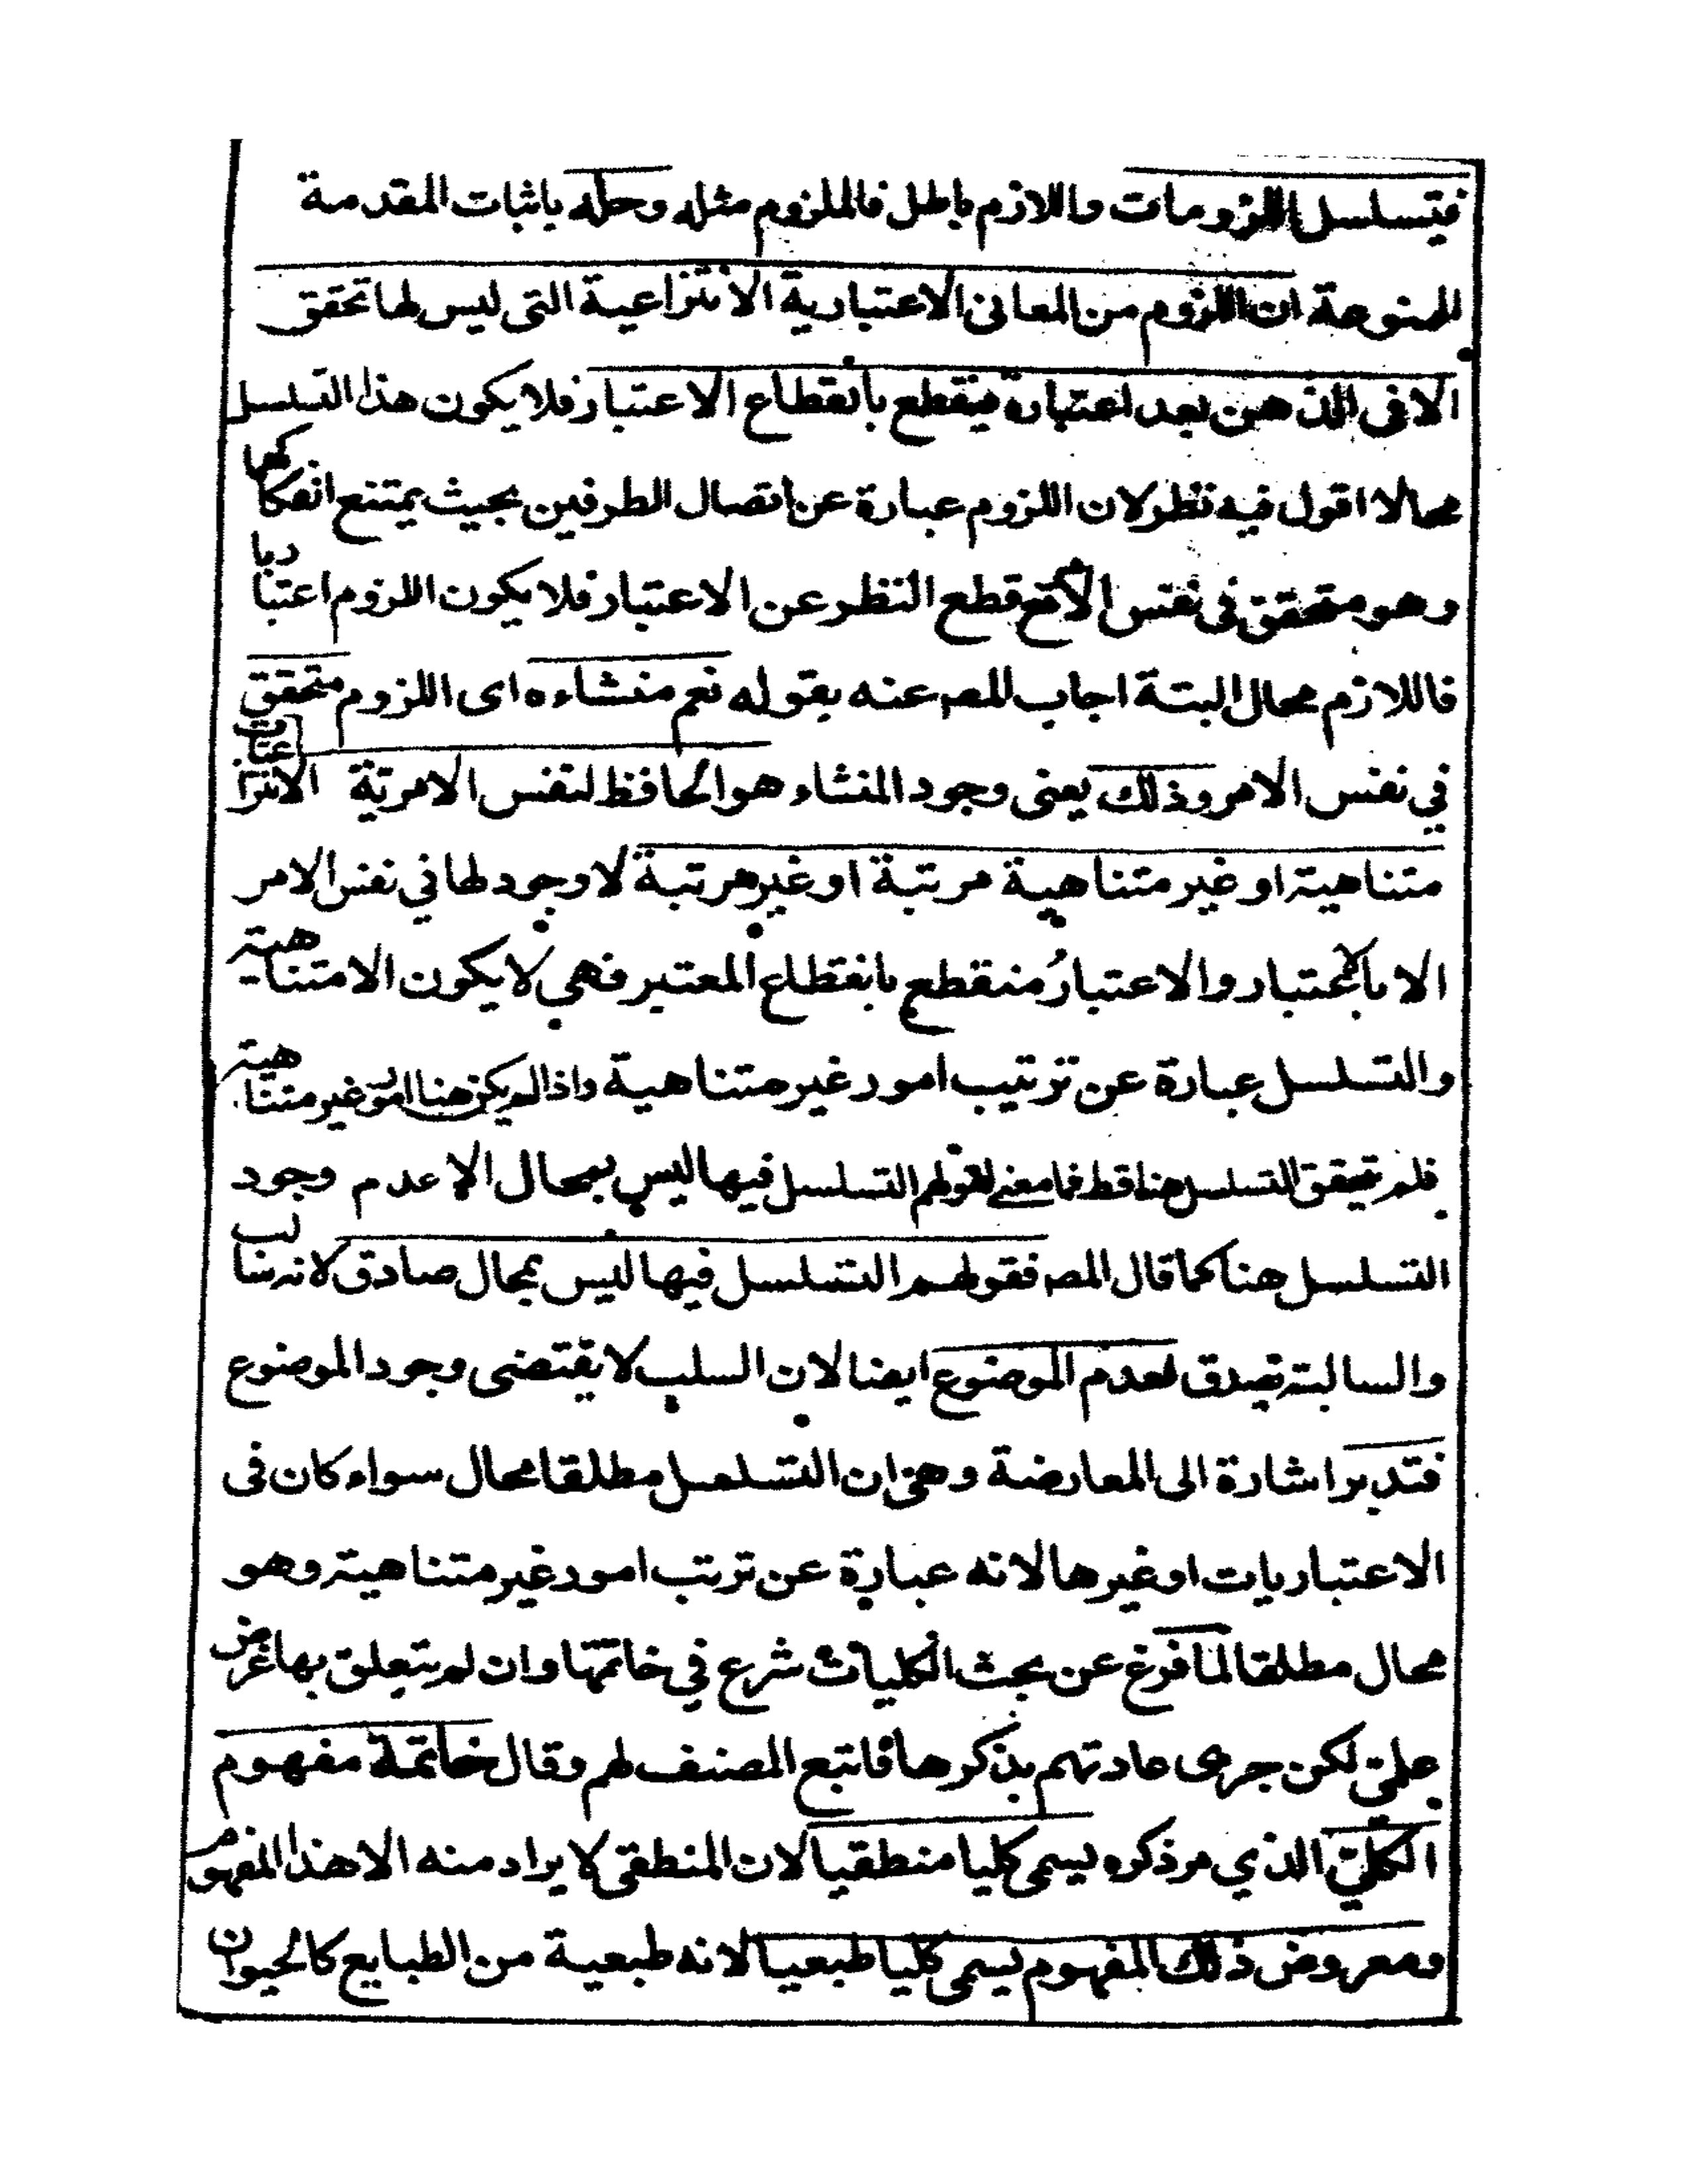 فيتسلسل اللزومات واللازم باطل فالملزوم مثله وحله باثبات المقدمة
الممنوعة ان اللزوم من المعانى الاعتبارية الانتزاعية التى ليس لها تحقق
الا فى الذهن بعد اعتباره فينقطع بانقطاع الاعتبار فلا يكون هذا التسلسل
محالا اقول فيه نظر لان اللزوم عبارة عن اتصال الطرفين بحيث يمتنع انفكاكهما
وهو متحقق فى نفس الامر مع قطع النظر عن الاعتبار فلا يكون اللزوم اعتباديا
فاللازم محال البتة اجاب المصـ عنه بقوله نعم منشاءه اى اللزوم متحقق
في نفس الامر وذلك يعنى وجود المنشاء هو الحافظ لنفس الامرية الانتزاعيات
متناهية او غير متناهية مرتبة او غير مرتبة لا وجود لها في نفس الامر
الا بالاعتبار والاعتبار منقطع بانقطاع المعتبر فهي لا يكون الا متناهية
والتسلسل عبارة عن ترتيب امور غير متناهية واذا لم يكن هنا امور غير متناهية
فلم تتحقق التسلسل هنا قط فما معنى لقولهم التسلسل فيها ليس بمحال الا عدم وجود
التسلسل هنا كما قال المصـ فقولهم التسلسل فيها ليس بمحال صادق لانه سالب
والسالبة تصدق لعدم الموضوع ايضا لان السلب لا يقتضى وجود الموضوع
فتدبر اشارة الى المعارضة وهى ان التسلسل مطلقا محال سواء كان فى
الاعتباريات او غيرها لانه عبارة عن ترتب امور غير متناهية وهو
محال مطلقا لما فرغ عن بحث الكليات شرع في خاتمتها وان لم يتعلق بها غرض
علمىّ لكن جرى عادتهم بذكرها فاتبع المصنف لهم وقال خاتمة مفهوم
الكلىّ الذي مر ذكره يسمى كليا منطقيا لان المنطقى لا يراد منه الا هذا المفهوم
ومعروض ذلك المفهوم يسمى كليا طبعيا لانه طبعية من الطبايع كالحيوان